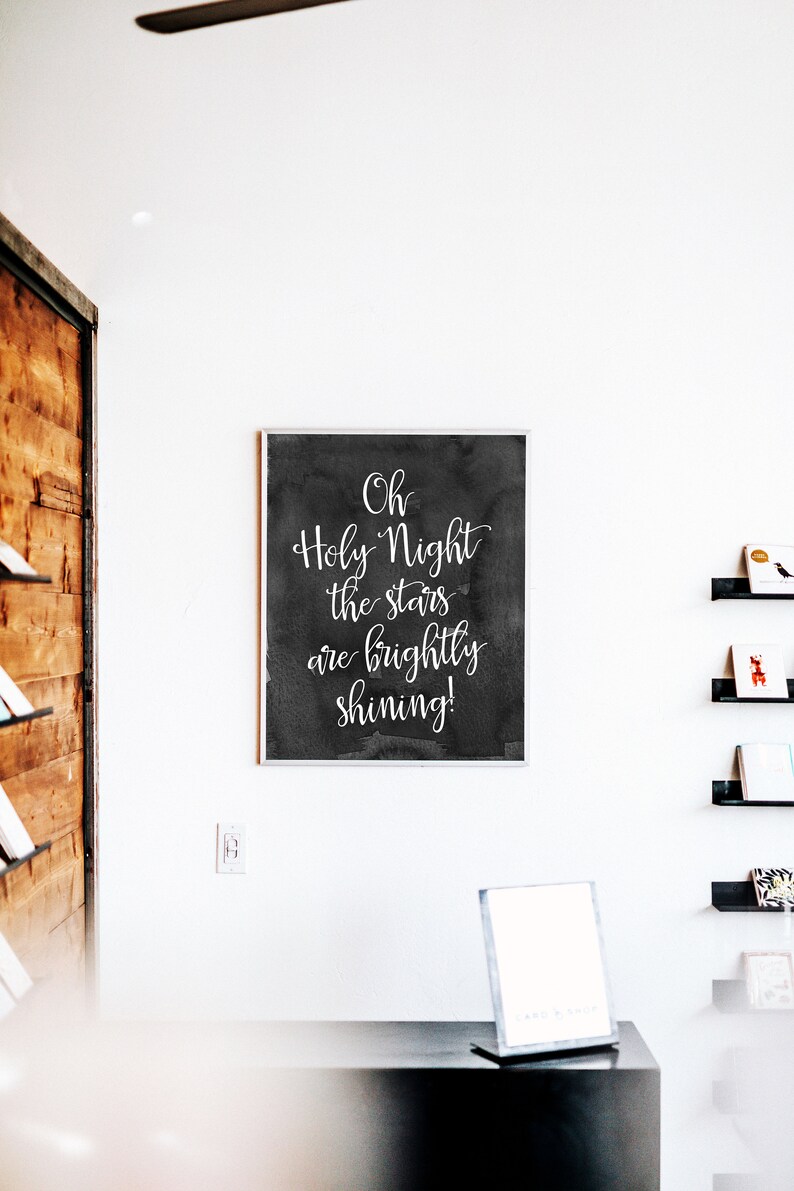 Oh
Holy Night
the stars
are brightly
shining!
CARD SHOP